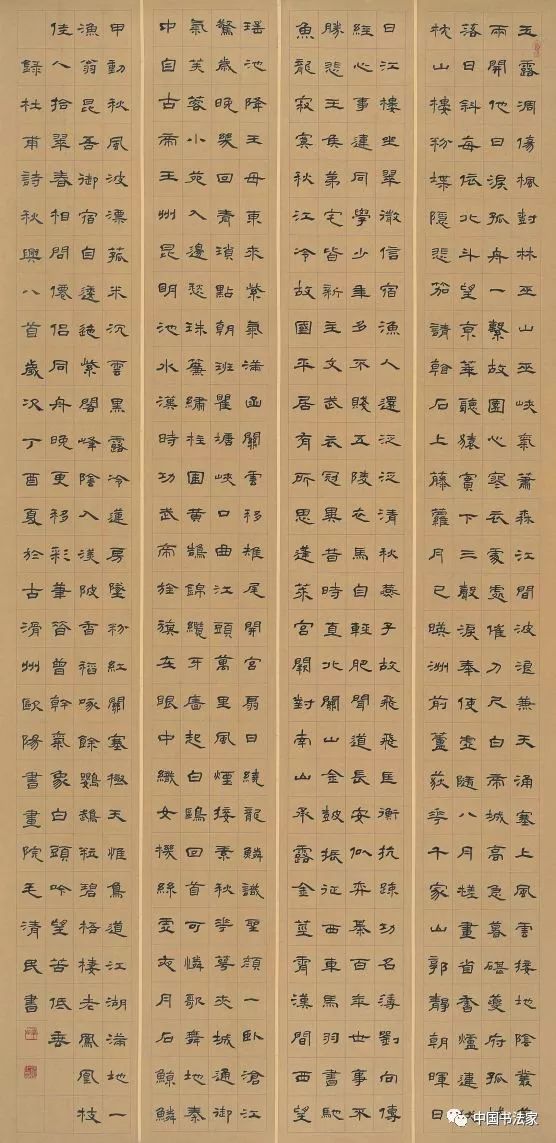 玉露凋傷楓對林巫山巫峽氣蕭森江間波浪兼天涌塞上風雲接地陰叢菊
兩開他日淚孤舟一繫故園心寒衣處處催刀尺白帝城高急暮砧夔府孤城
落日斜每依北斗望京華聽猿實下三聲淚奉使虛隨八月槎畫省香爐違伏
枕山樓粉堞隱悲笳請看石上藤蘿月已暎洲前蘆荻花千家山郭靜朝暉日
日江樓坐翠微信宿漁人還泛泛清秋燕子故飛飛匡衡抗疏功名薄劉向傳
經心事違同學少年多不賤五陵衣馬自輕肥聞道長安似弈棊百年世事不
勝悲王侯第宅皆新主文武衣冠異昔時直北關山金鼓振征西車馬羽書馳
魚龍寂寞秋江冷故國平居有所思蓬萊宮闕對南山承露金莖霄漢間西望
瑤池降王母東來紫氣滿函關雲移雉尾開宮扇日繞龍鱗識聖顏一臥滄江
驚歲晚幾回青瑣點朝班瞿塘峽口曲江頭萬里風煙接素秋華萼夾城通御
氣芙蓉小苑入邊愁珠簾繡柱圍黃鵠錦纜牙檣起白鷗回首可憐歌舞地秦
中自古帝王州昆明池水漢時功武帝旌旗在眼中織女機絲虛夜月石鯨鱗
甲動秋風波漂菰米沉雲黑露冷蓮房墜粉紅關塞極天惟鳥道江湖滿地一
漁翁昆吾御宿自逶迤紫閣峰陰入渼陂香稻啄餘鸚鵡粒碧梧棲老鳳凰枝
佳人拾翠春相問僊侶同舟晚更移彩筆昔曾幹氣象白頭吟望苦低垂
錄杜甫詩秋興八首歲次丁酉夏於古滑州歐陽書畫院毛清民書
中国书法家